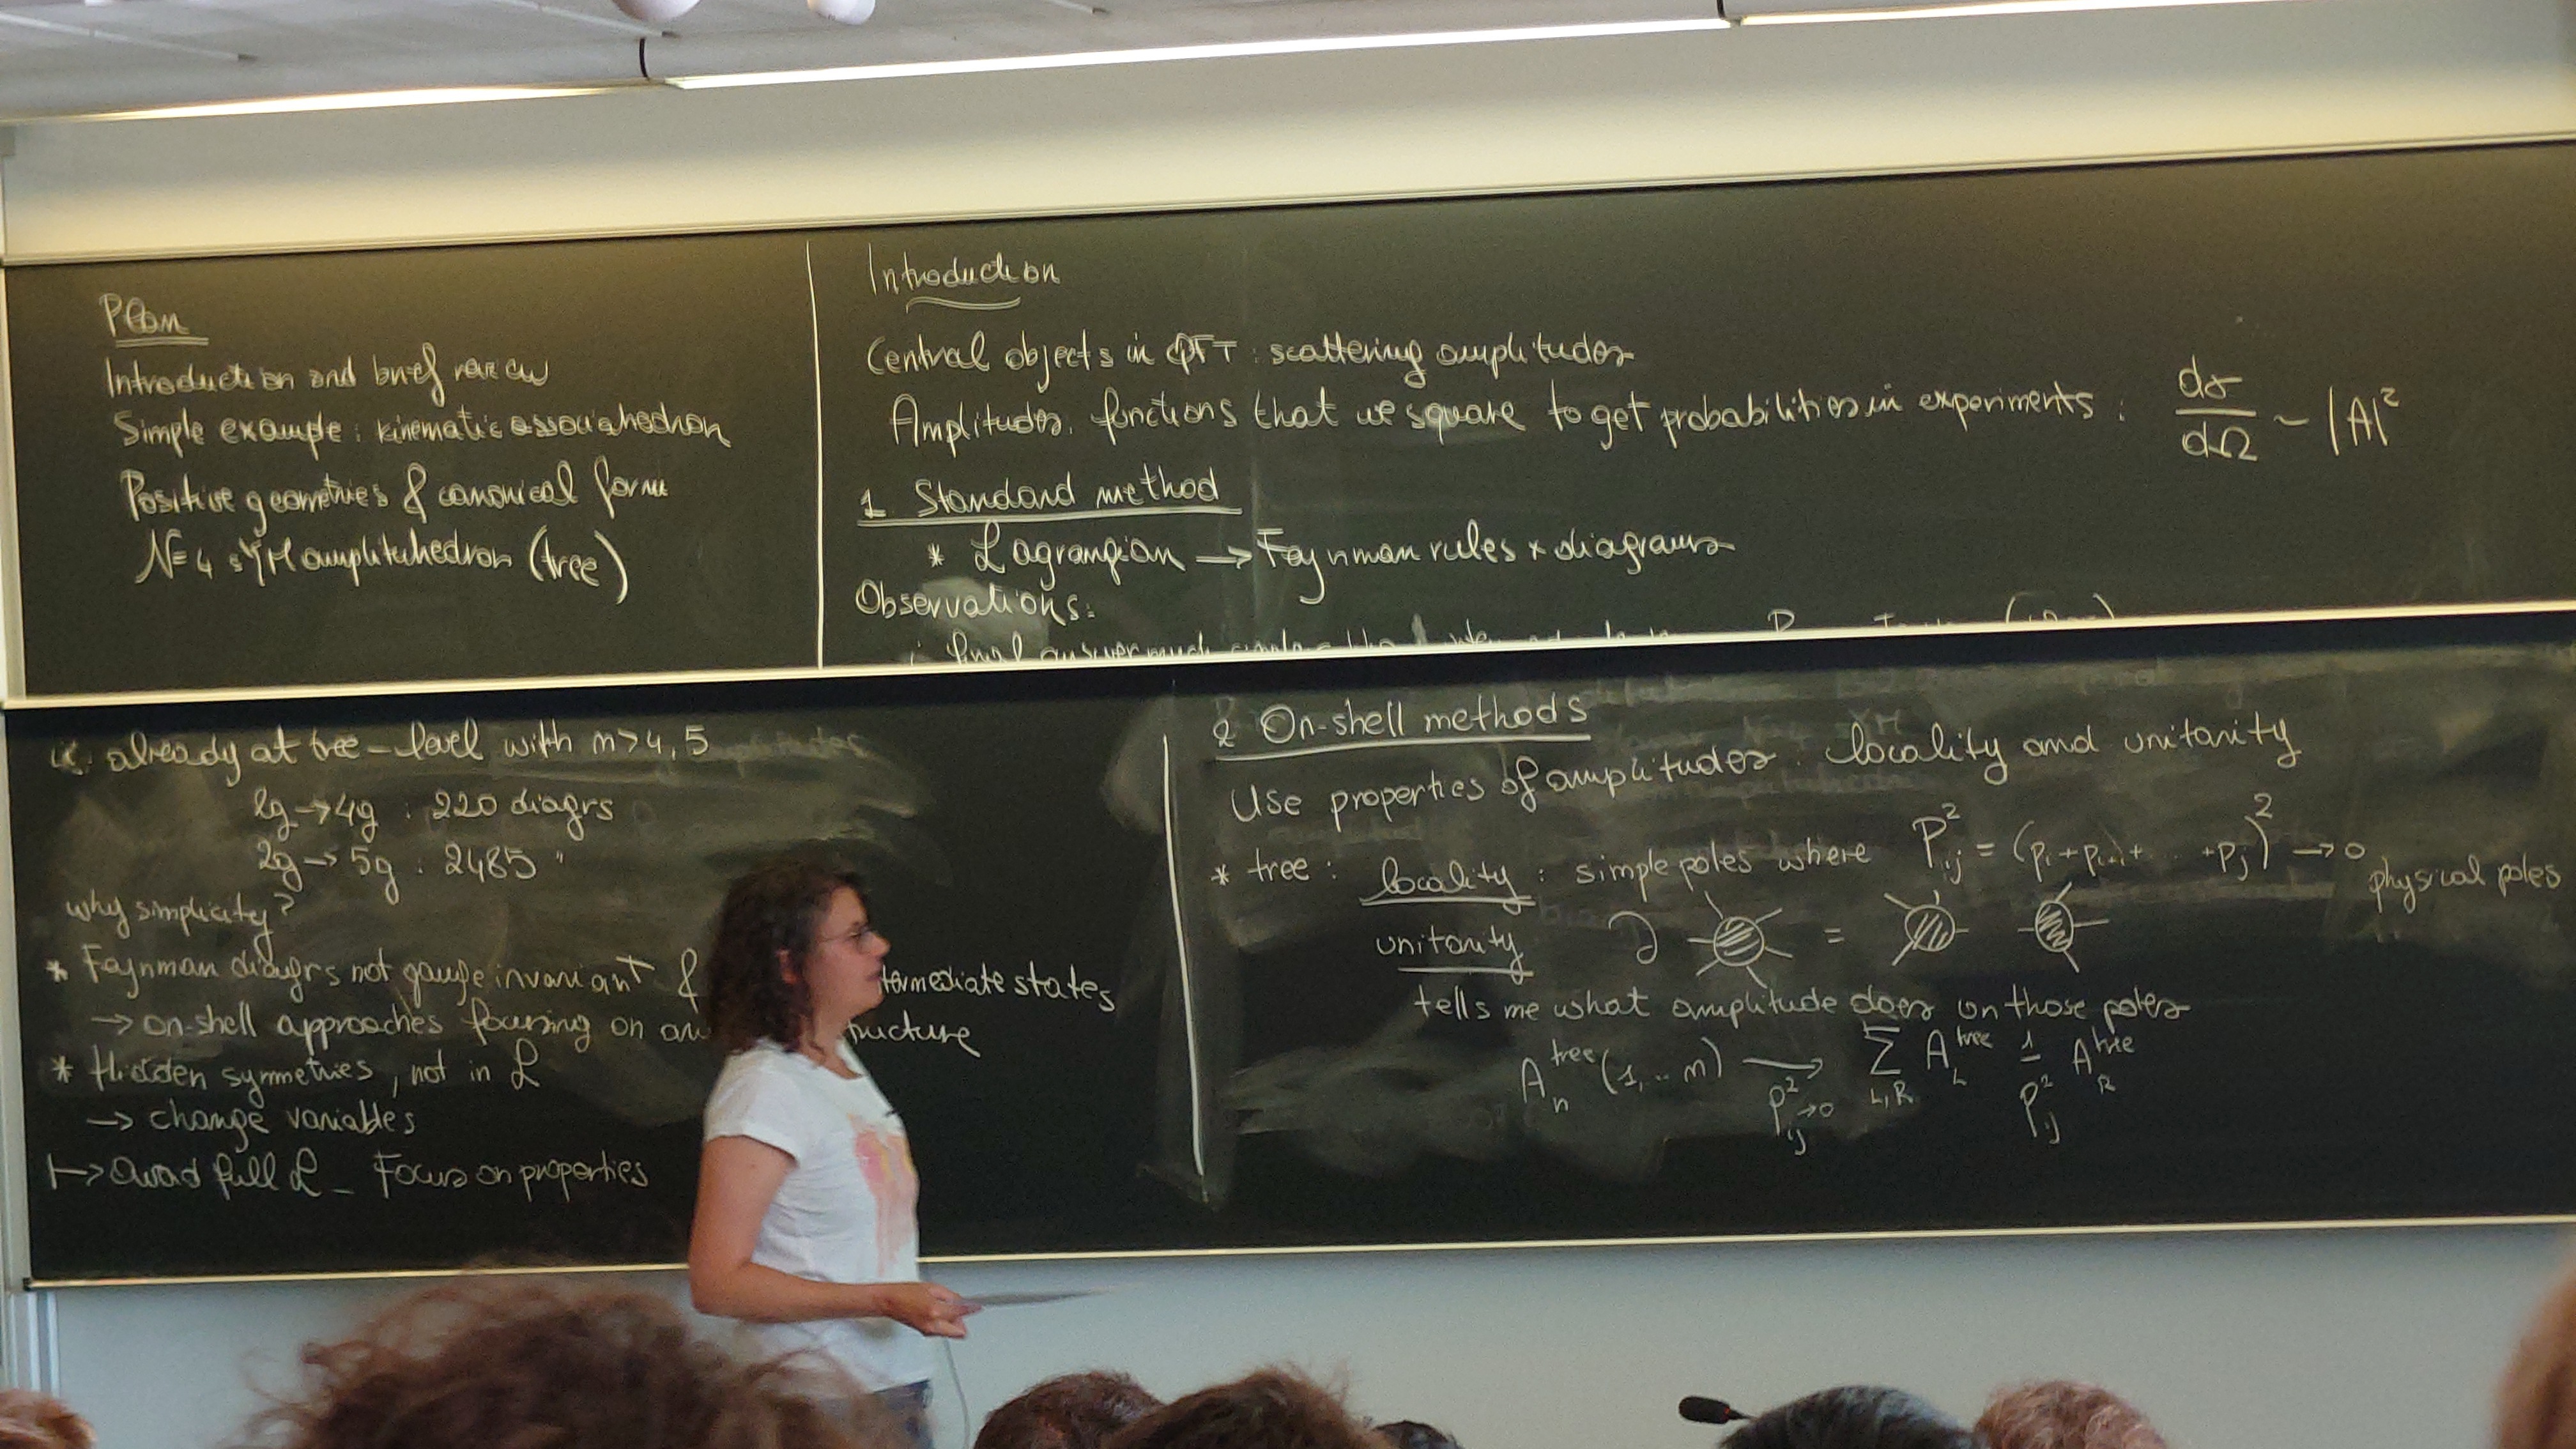 Plan
Introduction and brief review
Simple example: kinematic associahedron
Positive geometries & canonical forms
N=4 sYM amplituhedron (tree)
Introduction
Central objects in QFT: scattering amplitudes
Amplitudes: functions that we square to get probabilities in experiments: dσ/dΩ ~ |A|²
1 Standard method
* Lagrangian → Feynman rules + diagrams
Observations:
final answer much
already at tree-level with n>4,5
2g→4g : 220 diagrs
2g→5g : 2485 "
why simplicity?
* Feynman diagrs not gauge invariant & termediate states
→ on-shell approaches focusing on ructure
* Hidden symmetries, not in ℒ
→ change variables
↦ avoid full ℒ - Focus on properties
2 On-shell methods
Use properties of amplitudes: locality and unitarity
* tree: locality: simple poles where P²ij = (pi + pi+1 + ... + pj)² → 0 physical poles
unitarity ∂ =
tells me what amplitude does on those poles
An^tree (1,..n) → P²ij→0 Σ L,R A_L^tree 1/P²ij A_R^tree